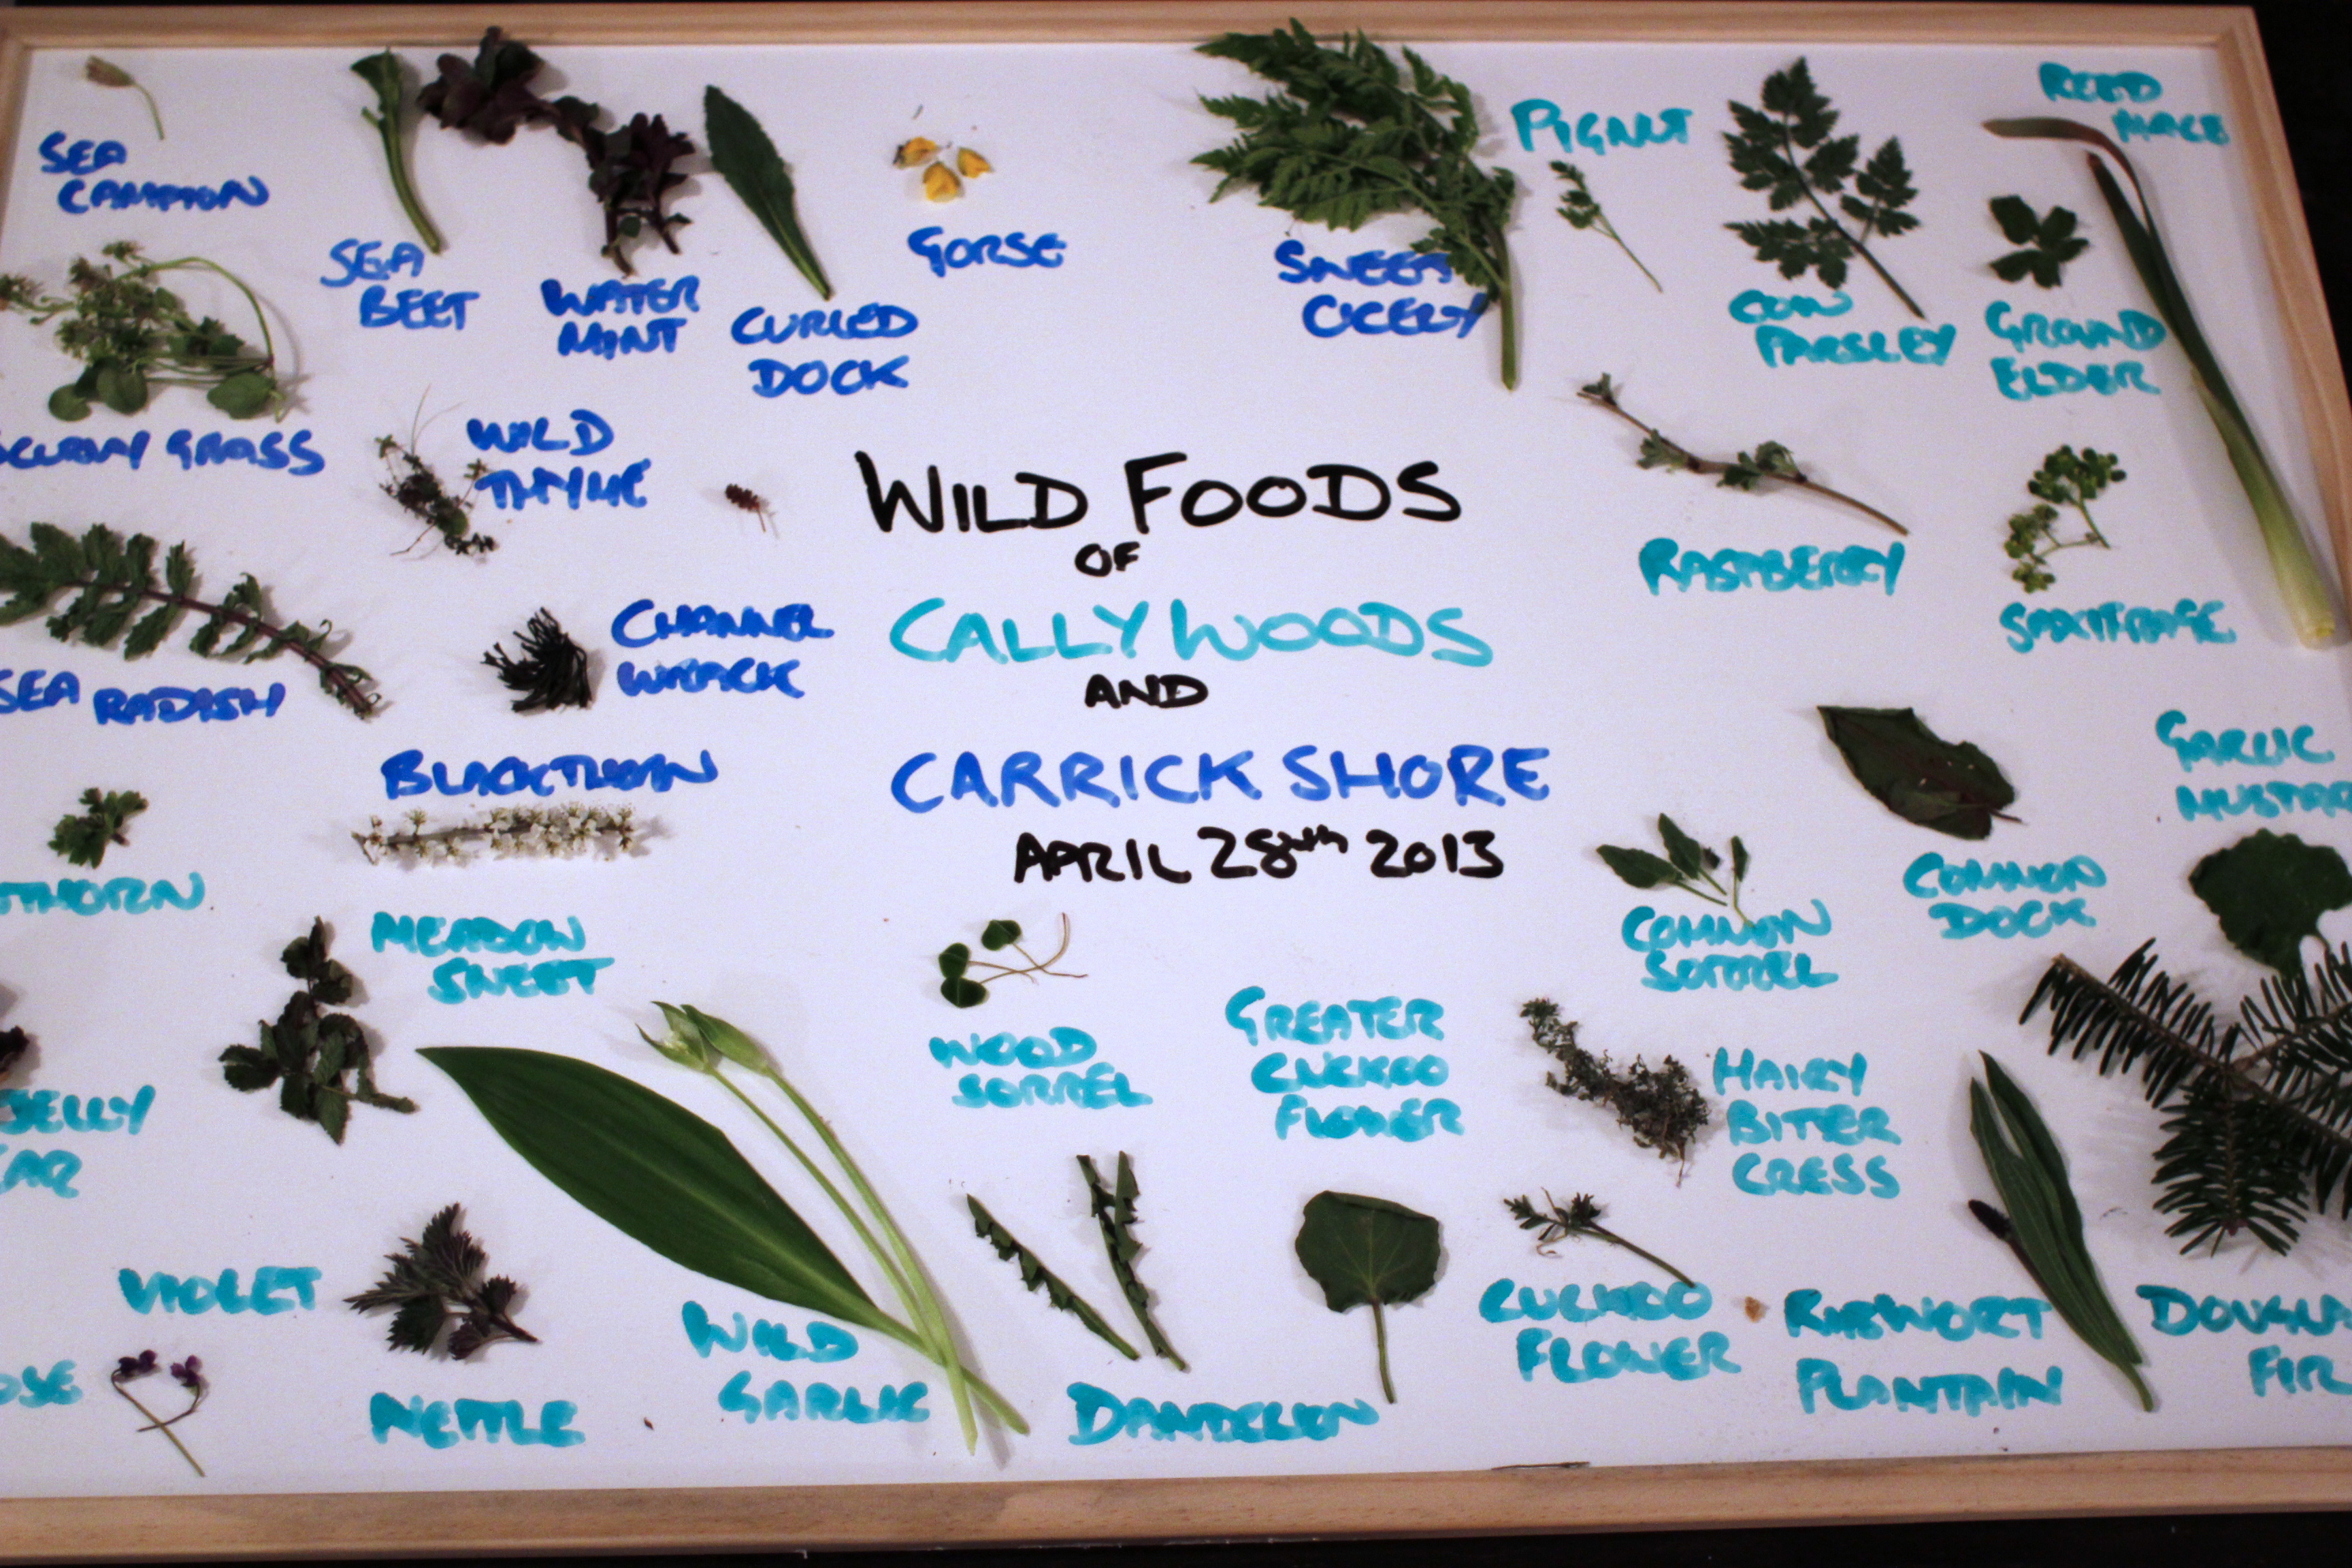 SEA
CAMPION
SEA
BEET
WATER
MINT
CURLED
DOCK
GORSE
SWEET
CICELY
PIGNUT
COW
PARSLEY
REED
MACE
GROUND
ELDER
SCURVY GRASS
WILD
THYME
RASPBERRY
SAXIFRAGE
SEA RADISH
CHANNEL
WRACK
BLACKTHORN
WILD FOODS
OF
CALLY WOODS
AND
CARRICK SHORE
APRIL 28th 2013
THORN
MEADOW
SWEET
WOOD
SORREL
GREATER
CUCKOO
FLOWER
COMMON
SORREL
COMMON
DOCK
GARLIC
MUSTAR
HAIRY
BITTER
CRESS
JELLY
EAR
VIOLET
OSE
NETTLE
WILD
GARLIC
DANDELION
CUCKOO
FLOWER
RIBWORT
PLANTAIN
DOUGLA
FIR